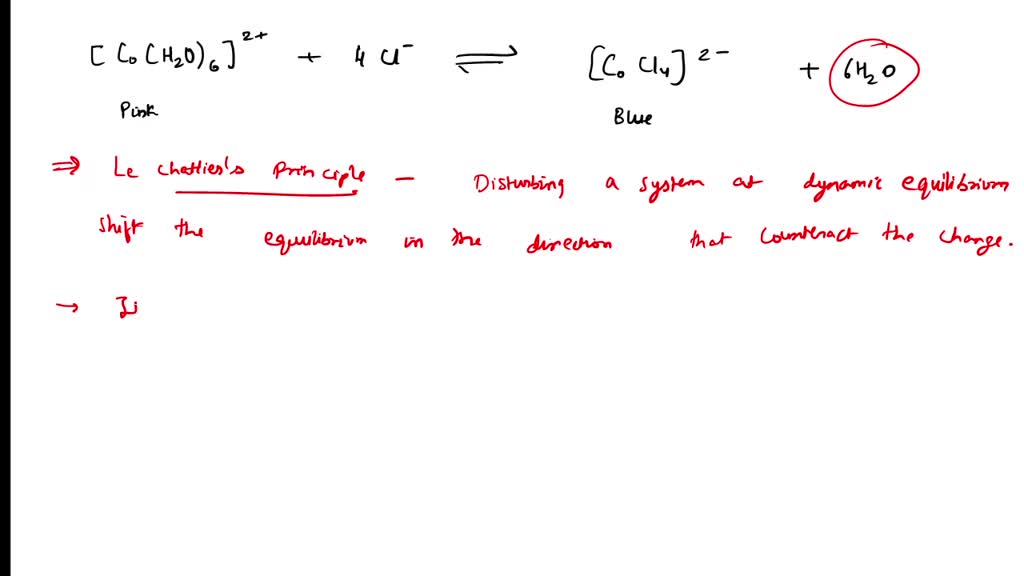 [Co(H2O)6]2+ + 4 Cl- ⇌ [CoCl4]2- + 6H2O
Pink Blue
⇒ Le chatlier's Principle - Disturbing a system at dynamic equilibrium
shift the equilibrium in the direction that counteract the change.
→